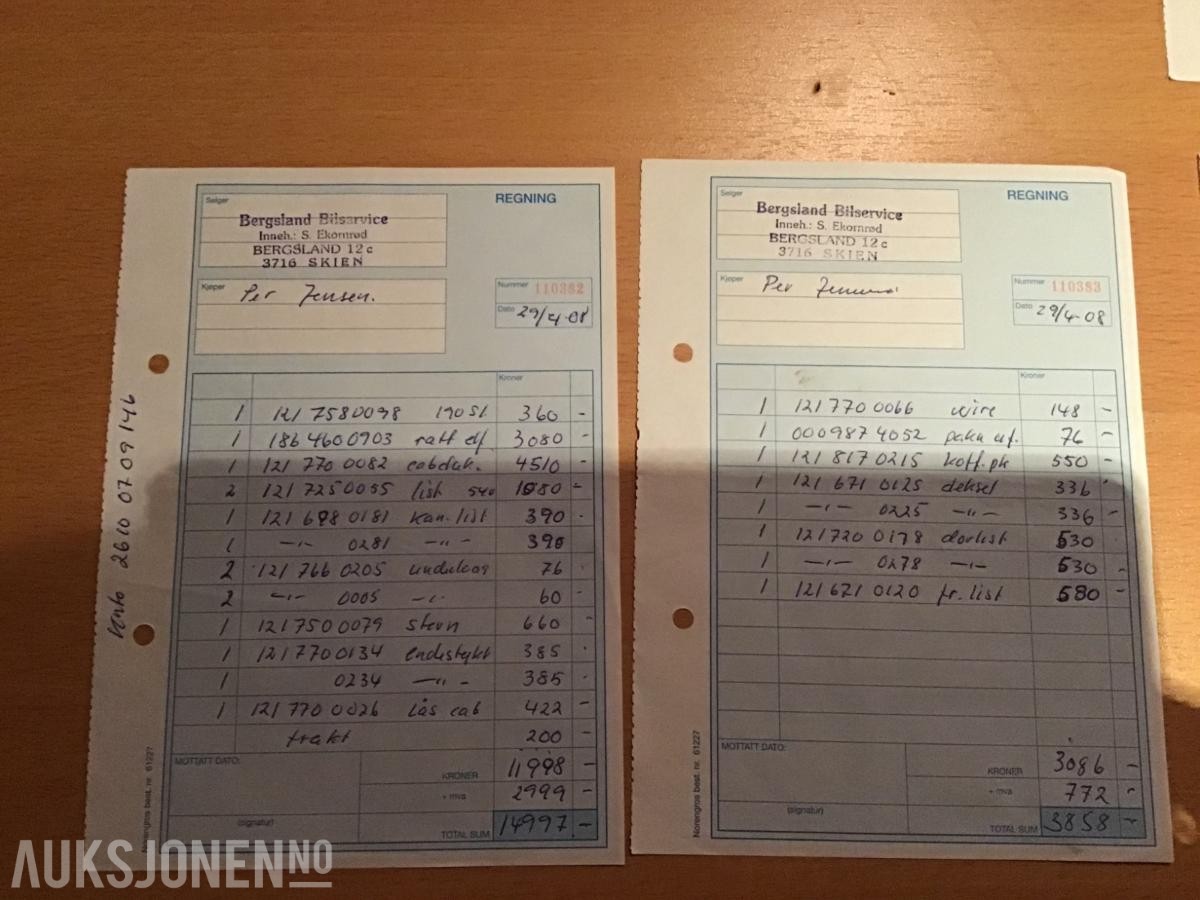 Selger
REGNING
Bergsland Bilservice
Inneh.: S. Ekornrød
BERGSLAND 12 c
3716 SKIEN
Kjøper
Per Jensen.
Nummer 110382
Dato 29/4-08
Kroner
1 121 7580098 190 SL 360 -
1 186 4600903 ratt 3080 -
1 121 770 0082 cabduk. 4510 -
2 121 7250055 list 540 1080 -
1 121 698 0181 kan.list 390 -
1 -"- 0281 -"- 390
2 121 766 0205 76 -
2 -"- 0005 -"- 60 -
1 121 7500079 660 -
1 121 7700134 endestykt 385 -
1 0234 -"- 385 -
1 121 770 0026 lås cab 422 -
frakt 200 -
MOTTATT DATO:
KRONER 11998 -
+ mva 2999 -
(signatur)
TOTAL SUM 14997 -
Norengros best. nr. 61227
Konto 2610 07 09146
Selger
REGNING
Bergsland Bilservice
Inneh.: S. Ekornrød
BERGSLAND 12 c
3716 SKIEN
Kjøper
Per
Nummer 110383
Dato 29/4-08
Kroner
1 121 770 0066 wire 148 -
1 000987 4052 76 -
1 121 817 0215 550 -
1 121 671 0125 deksel 336 -
1 -"- 0225 -"- 336 -
1 121720 0178 dørlist 530 -
1 -"- 0278 -"- 530 -
1 121 671 0120 fr. list 580 -
MOTTATT DATO:
KRONER 3086 -
+ mva 772 -
(signatur)
TOTAL SUM 3858 -
Norengros best. nr. 61227
AUKSJONEN NO